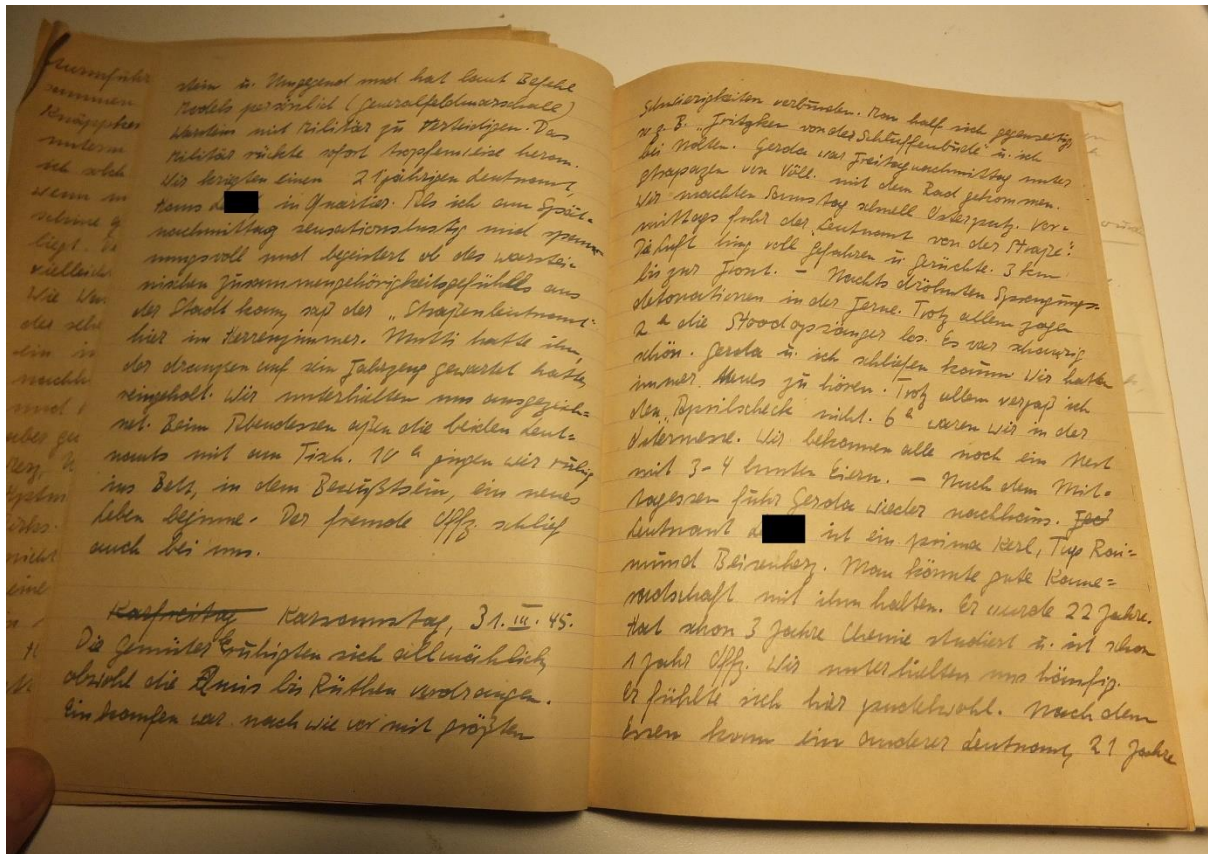 stein u. Umgegend und hat laut Befehl
Models persönlich (Generalfeldmarschall)
Warstein mit Militär zu verteidigen. Das
Militär rückte sofort tropfenweise heran.
Wir kriegten einen 21jährigen Leutnant,
Hans de in Quartier. Als ich am Spät=
nachmittag sensationslustig und span=
nungsvoll und begeistert ob des warstei=
nischen Zusammengehörigkeitsgefühles aus
der Stadt kam, saß der „Straßenleutnant"
hier im Herrenzimmer. Mutti hatte ihn,
der draußen auf sein Fahrzeug gewartet hatte,
reingeholt. Wir unterhielten uns ausgezeich=
net. Beim Abendessen aßen die beiden Leut=
nants mit am Tisch. 10 h gingen wir ruhig
ins Bett, in dem Bewußtsein, ein neues
Leben beginne. Der fremde Offz. schlief
auch bei uns.
Karfreitag Karsamstag, 31. III. 45.
Die Gemüter beruhigten sich allmählich,
obwohl die Amis bis Rüthen vordrangen.
Einkaufen war nach wie vor mit größten
Schwierigkeiten verbunden. Man half sich gegenseitig
so z. B. „Fritzken von der Schluffenbude" u. ich
bei Nolten. Gerda war Freitagnachmittag unter
Strapazen von Völl. mit dem Rad gekommen.
Wir machten Samstag schnell Osterputz. Vor=
mittags fuhr der „Leutnant von der Straße"
bis zur Front. – Nachts dröhnten Sprengungs=
Die Luft hing voll Gefahren u. Gerüchte. 3 km
detonationen in der Ferne. Trotz allem zogen
2 h die sänger los. Es war schaurig
schön. Gerda u. ich schliefen kaum. Wir hatten
immer Neues zu hören. Trotz allem vergaß ich
den „Aprilscheck" nicht. 6 h waren wir in der
Ostermesse. Wir bekommen alle noch ein Nest
mit 3-4 bunten Eiern. – Nach dem Mit=
tagessen fuhr Gerda wieder nachhaus.
Leutnant de ist ein prima Kerl, Typ Rai=
mund. Man könnte gute Kame=
radschaft mit ihm halten. Er wurde 22 Jahre.
Hat schon 3 Jahre Chemie studiert u. ist schon
1 Jahr Offz. Wir unterhielten uns häufig.
Er fühlte sich hier pudelwohl. Nach dem
Essen kam ein anderer Leutnant, 21 Jahre